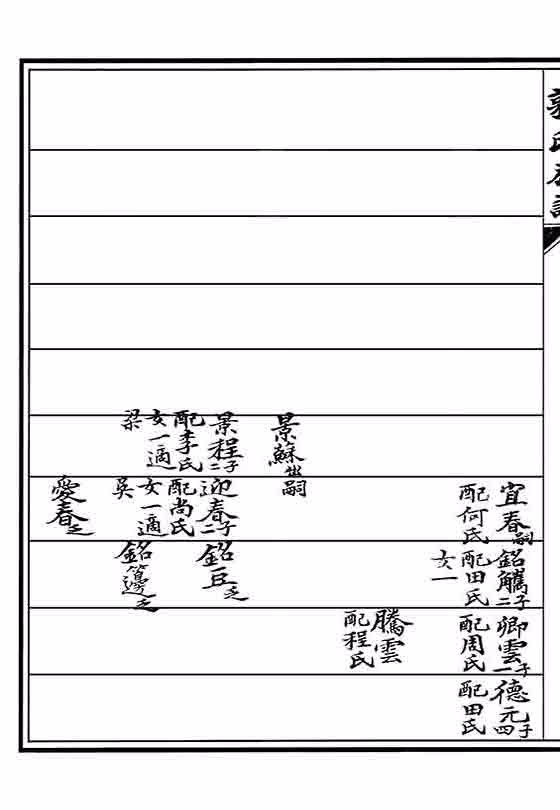 郭氏族譜
景蘇出嗣
景程二子
配李氏
女一適
梁
宜春嗣
配何氏
迎春二子
配尚氏
女一適
吳
愛春乏
銘觿二子
配田氏
女一
銘豆乏
銘籩乏
卿雲一子
配周氏
騰雲
配程氏
德元四子
配田氏